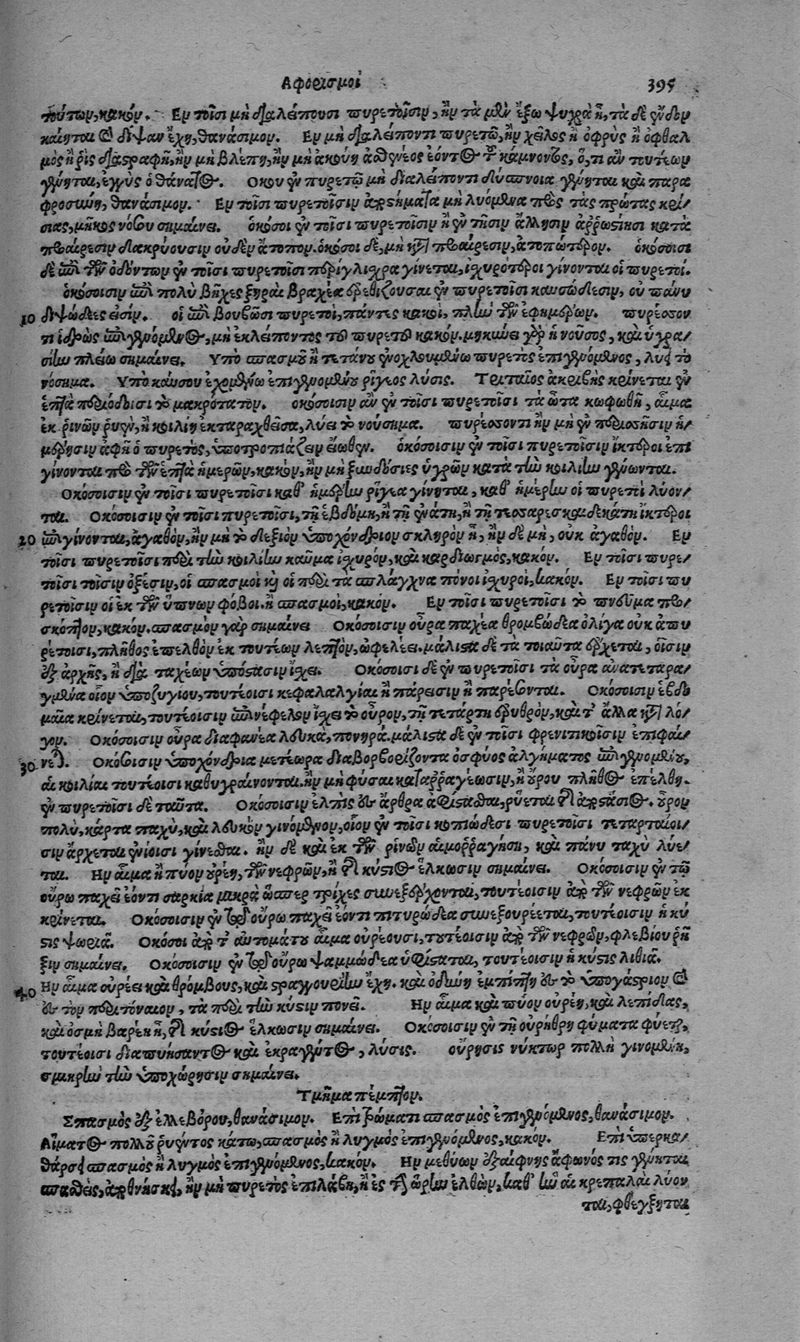 Ἀφορισμοί 395
τούτων, κακόν. Ἐν τοῖσι μὴ διαλείπουσι πυρετοῖσιν, ἢν τὰ μὲν ἔξω ψυχρὰ ᾖ, τὰ δὲ ἔνδον
καίηται καὶ δίψαν ἔχῃ, θανάσιμον. Ἐν μὴ διαλείποντι πυρετῷ, ἢν χεῖλος ἢ ὀφρὺς ἢ ὀφθαλ
μὸς ἢ ῥὶς διαστραφῇ, ἢν μὴ βλέπῃ, ἢν μὴ ἀκούῃ ἀσθενέος ἐόντος τοῦ κάμνοντος, ὅ, τι ἂν τουτέων
γένηται, ἐγγὺς ὁ θάνατος. Ὅκου ἐν πυρετῷ μὴ διαλείποντι δύσπνοια γένηται καὶ παρα
φροσύνη, θανάσιμον. Ἐν τοῖσι πυρετοῖσιν ἀποστήματα μὴ λυόμενα πρὸς τὰς πρώτας κρί/
σιας, μῆκος νόσου σημαίνει. ὁκόσοι ἐν τοῖσι πυρετοῖσιν ἢ ἐν τῇσιν ἄλλῃσιν ἀρρωστίῃσι κατὰ
προαίρεσιν δακρύουσιν οὐδὲν ἄτοπον. ὁκόσοι δὲ, μὴ κατὰ προαίρεσιν, ἀτοπώτερον. ὁκόσοισι
δὲ ἐπὶ τῶν ὀδόντων ἐν τοῖσι πυρετοῖσι περίγλισχρα γίνεται, ἰσχυρότεροι γίνονται οἱ πυρετοί.
ὁκόσοισιν ἐπὶ πολὺ βῆχες ξηραὶ βραχέα ἐρεθίζουσαι ἐν πυρετοῖσι καυσώδεσιν, οὐ πάνυ
10 διψώδεές εἰσιν. οἱ ἐπὶ βουβῶσι πυρετοὶ, πάντες κακοὶ, πλὴν τῶν ἐφημέρων. πυρέσσον
τι ἱδρὼς ἐπιγενόμενος, μὴ ἐκλείποντος τοῦ πυρετοῦ κακόν. μηκύνει γὰρ ἡ νοῦσος, καὶ ὑγρα/
σίην πλείω σημαίνει. Ὑπὸ σπασμοῦ ἢ τετάνου ἐνοχλουμένῳ πυρετὸς ἐπιγενόμενος, λύει τὸ
νόσημα. Ὑπὸ καύσου ἐχομένῳ ἐπιγενομένου ῥίγεος λύσις. Τριταῖος ἀκριβὴς κρίνεται ἐν
ἑπτὰ περιόδοισι τὸ μακρότατον. ὁκόσοισιν ἂν ἐν τοῖσι πυρετοῖσι τὰ ὦτα κωφωθῇ, αἷμα
ἐκ ῥινῶν ῥυὲν, ἢ κοιλίη ἐκταραχθεῖσα, λύει τὸ νούσημα. πυρέσσοντι ἢν μὴ ἐν περισσῇσιν ἡ/
μέρῃσιν ἀφῇ ὁ πυρετὸς, ὑποτροπιάζειν εἴωθεν. ὁκόσοισιν ἐν τοῖσι πυρετοῖσιν ἴκτεροι ἐπι
γίνονται πρὸ τῶν ἑπτὰ ἡμερῶν, κακὸν, ἢν μὴ ξυνδόσιες ὑγρῶν κατὰ τὴν κοιλίην γένωνται.
Ὁκόσοισιν ἐν τοῖσι πυρετοῖσι καθ' ἡμέρην ῥίγεα γίνηται, καθ' ἡμέρην οἱ πυρετοὶ λύον/
ται. Ὁκόσοισιν ἐν τοῖσι πυρετοῖσι, τῇ ἑβδόμῃ, ἢ τῇ ἐνάτῃ, ἢ τῇ τεσσαρεσκαιδεκάτῃ ἴκτεροι
20 ἐπιγίνονται, ἀγαθὸν, ἢν μὴ τὸ δεξιὸν ὑποχόνδριον σκληρὸν ᾖ, ἢν δὲ μὴ, οὐκ ἀγαθόν. Ἐν
τοῖσι πυρετοῖσι περὶ τὴν κοιλίην καῦμα ἰσχυρὸν, καὶ καρδιωγμὸς, κακόν. Ἐν τοῖσι πυρε/
τοῖσι τοῖσιν ὀξέσιν, οἱ σπασμοὶ καὶ οἱ περὶ τὰ σπλάγχνα πόνοι ἰσχυροὶ, κακόν. Ἐν τοῖσι πυ
ρετοῖσιν οἱ ἐκ τῶν ὕπνων φόβοι ἢ σπασμοὶ, κακόν. Ἐν τοῖσι πυρετοῖσι τὸ πνεῦμα προ/
σκόπτον, κακόν. σπασμὸν γὰρ σημαίνει Ὁκόσοισιν οὖρα παχέα θρομβώδεα ὀλίγα οὐκ ἀπυ
ρέτοισι, πλῆθος ἐπελθὸν ἐκ τουτέων λεπτὸν, ὠφελέει. μάλιστα δὲ τὰ τοιαῦτα ἔρχεται, οἷσιν
ἐξ ἀρχῆς, ἢ διὰ ταχέων ὑπόστασιν ἴσχει. Ὁκόσοισι δὲ ἐν πυρετοῖσι τὰ οὖρα ἀνατεταρα/
γμένα οἷον ὑποζυγίου, τουτέοισι κεφαλαλγίαι ἢ πάρεισιν ἢ παρέσονται. Ὁκόσοισιν ἑβδο
μαῖα κρίνεται, τουτέοισιν ἐπινέφελον ἴσχει τὸ οὖρον, τῇ τετάρτῃ ἐρυθρὸν, καὶ τ' ἄλλα κατὰ λό/
γον. Ὁκόσοισιν οὖρα διαφανέα λευκὰ, πονηρά. μάλιστα δὲ ἐν τοῖσι φρενιτικοῖσιν ἐπιφαί/
30 νεται. Ὁκόσοισιν ὑποχόνδρια μετέωρα διαβορβορίζοντα ὀσφύος ἀλγήματος ἐπιγενομένου,
αἱ κοιλίαι τουτέοισι καθυγραίνονται. ἢν μὴ φῦσαι καταρραγέωσιν, ἢ οὔρου πλῆθος ἐπέλθῃ.
ἐν πυρετοῖσι δὲ ταῦτα. Ὁκόσοισιν ἐλπὶς ἐς ἄρθρα ἀφίστασθαι, ῥύεται τῆς ἀποστάσιος. οὖρον
πολὺ, κάρτα παχὺ, καὶ λευκὸν γινόμενον, οἷον ἐν τοῖσι κοπιώδεσι πυρετοῖσι τεταρταίοι/
σιν ἄρχεται ἐνίοισι γίνεσθαι. ἢν δὲ καὶ ἐκ τῶν ῥινῶν αἱμορραγήσῃ, καὶ πάνυ ταχὺ λύε/
ται. Ἢν αἷμα ἢ πύον οὐρέῃ, τῶν νεφρῶν, ἢ τῆς κύστιος ἕλκωσιν σημαίνει. Ὁκόσοισιν ἐν τῷ
οὔρῳ παχεῖ ἐόντι σαρκία μικρὰ ὥσπερ τρίχες συνεξέρχονται, τουτέοισιν ἀπὸ τῶν νεφρῶν ἐκ
κρίνεται. Ὁκόσοισιν ἐν τῷ οὔρῳ παχεῖ ἐόντι πιτυρώδεα συνεξουρέεται, τουτέοισιν ἡ κύ
στις ψωριᾷ. Ὁκόσοι ἀπὸ τ' αὐτομάτου αἷμα οὐρέουσι, τουτέοισιν ἀπὸ τῶν νεφρῶν, φλεβίου ῥῆ
ξιν σημαίνει. Ὁκόσοισιν ἐν τῷ οὔρῳ ψαμμώδεα ὑφίσταται, τουτέοισιν ἡ κύστις λιθιᾷ.
40 Ἢν αἷμα οὐρέει καὶ θρόμβους, καὶ στραγγουρίην ἔχῃ. καὶ ὀδύνη ἐμπίπτῃ ἐς τὸ ὑπογάστριον καὶ
ἐς τὸν περιτόναιον, τὰ περὶ τὴν κύστιν πονεῖ. Ἢν αἷμα καὶ πύον οὐρέῃ, καὶ λεπίδας,
καὶ ὀσμὴ βαρείη ᾖ, τῆς κύστιος ἕλκωσιν σημαίνει. Ὁκόσοισιν ἐν τῇ οὐρήθρῃ φύματα φύεται,
τουτέοισι διαπυήσαντος καὶ ἐκραγέντος, λύσις. οὔρησις νύκτωρ πολλὴ γινομένη,
σμικρὴν τὴν ὑποχώρησιν σημαίνει.
Τμῆμα πέμπτον.
Σπασμὸς ἐξ ἑλλεβόρου, θανάσιμον. Ἐπὶ τρώματι σπασμὸς ἐπιγενόμενος, θανάσιμον.
Αἵματος πολλοῦ ῥυέντος κάτω, σπασμὸς ἢ λυγμὸς ἐπιγενόμενος, κακόν. Ἐπὶ ὑπερκα/
θάρσει σπασμὸς ἢ λυγμὸς ἐπιγενόμενος, κακόν. Ἢν μεθύων ἐξαίφνης ἄφωνός τις γένηται
σπασθεὶς, ἀποθνήσκει, ἢν μὴ πυρετὸς ἐπιλάβῃ, ἢ ἐς τὴν ὥρην ἐλθὼν, καθ' ἣν αἱ κραιπάλαι λύον
ται, φθέγξηται